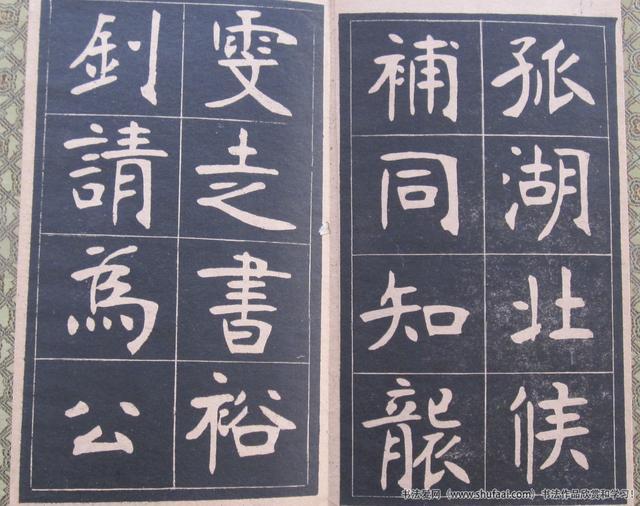 孤湖北候
補同知龍
雯走書裕
釗請為公
书法爱网（www.shufaai.com）--书法作品欣赏和学习！